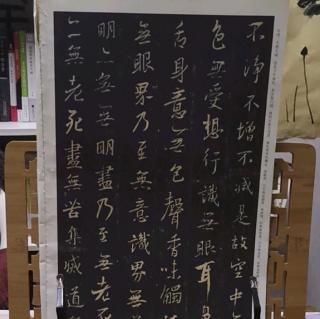 不淨不增不減是故空中
色無受想行識無眼耳鼻
舌身意無色聲香味觸
無眼界乃至無意識界無
明亦無無明盡乃至無老死
亦無老死盡無苦集滅道